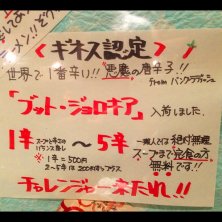 〈ギネス認定〉
世界で1番辛い!! 悪魔の唐辛子!!
from バングラデッシュ
「ブット・ジョロキア」
入荷しました。
1辛 〜 5辛
スープと辛さの
バランス良し
※ 1辛=500円
2〜5辛は200円ずつプラス
一般人には絶対無理
スープまで完食の方
無料です!!
チャレンジャー来たれ!!